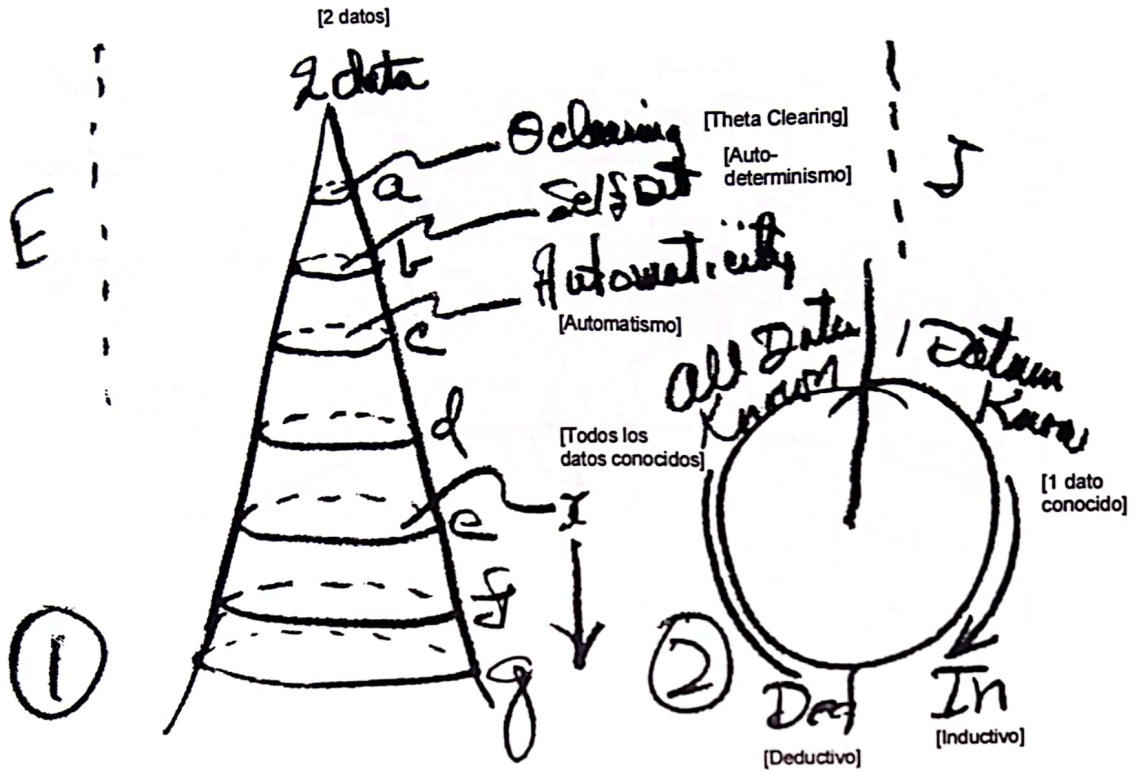 [2 datos]
2 data
θ clearing
[Theta Clearing]
a
Self Det
[Auto-
determinismo]
b
Automaticity
[Automatismo]
c
d
e
x
f
g
E
J
1
All Data
Known
[Todos los
datos conocidos]
1 Datum
Known
[1 dato
conocido]
2
Ded
[Deductivo]
In
[Inductivo]